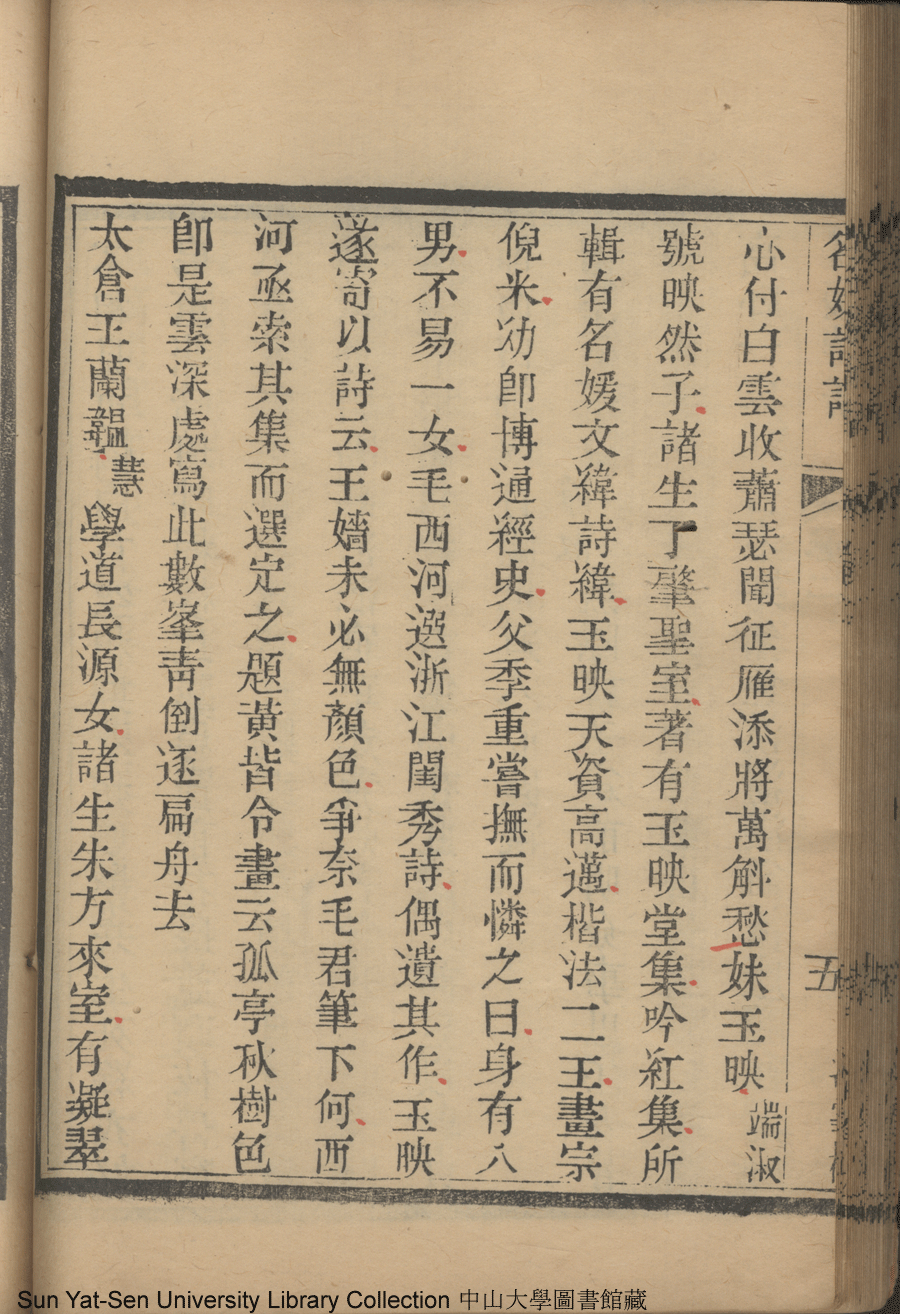 名媛詩話
五
心付白雲收蕭瑟聞征雁添將萬斛愁妹玉映端淑
號映然子諸生丁肇聖室著有玉映堂集吟紅集所
輯有名媛文緯詩緯玉映天資高邁楷法二王畫宗
倪米幼卽博通經史父季重嘗撫而憐之曰身有八
男不易一女毛西河選浙江閨秀詩偶遺其作玉映
遂寄以詩云王嬙未必無顏色爭奈毛君筆下何西
河亟索其集而選定之題黃皆令畫云孤亭秋樹色
卽是雲深處寫此數峯靑倒逐扁舟去
太倉王蘭韞慧學道長源女諸生朱方來室有凝翠
Sun Yat-Sen University Library Collection 中山大學圖書館藏